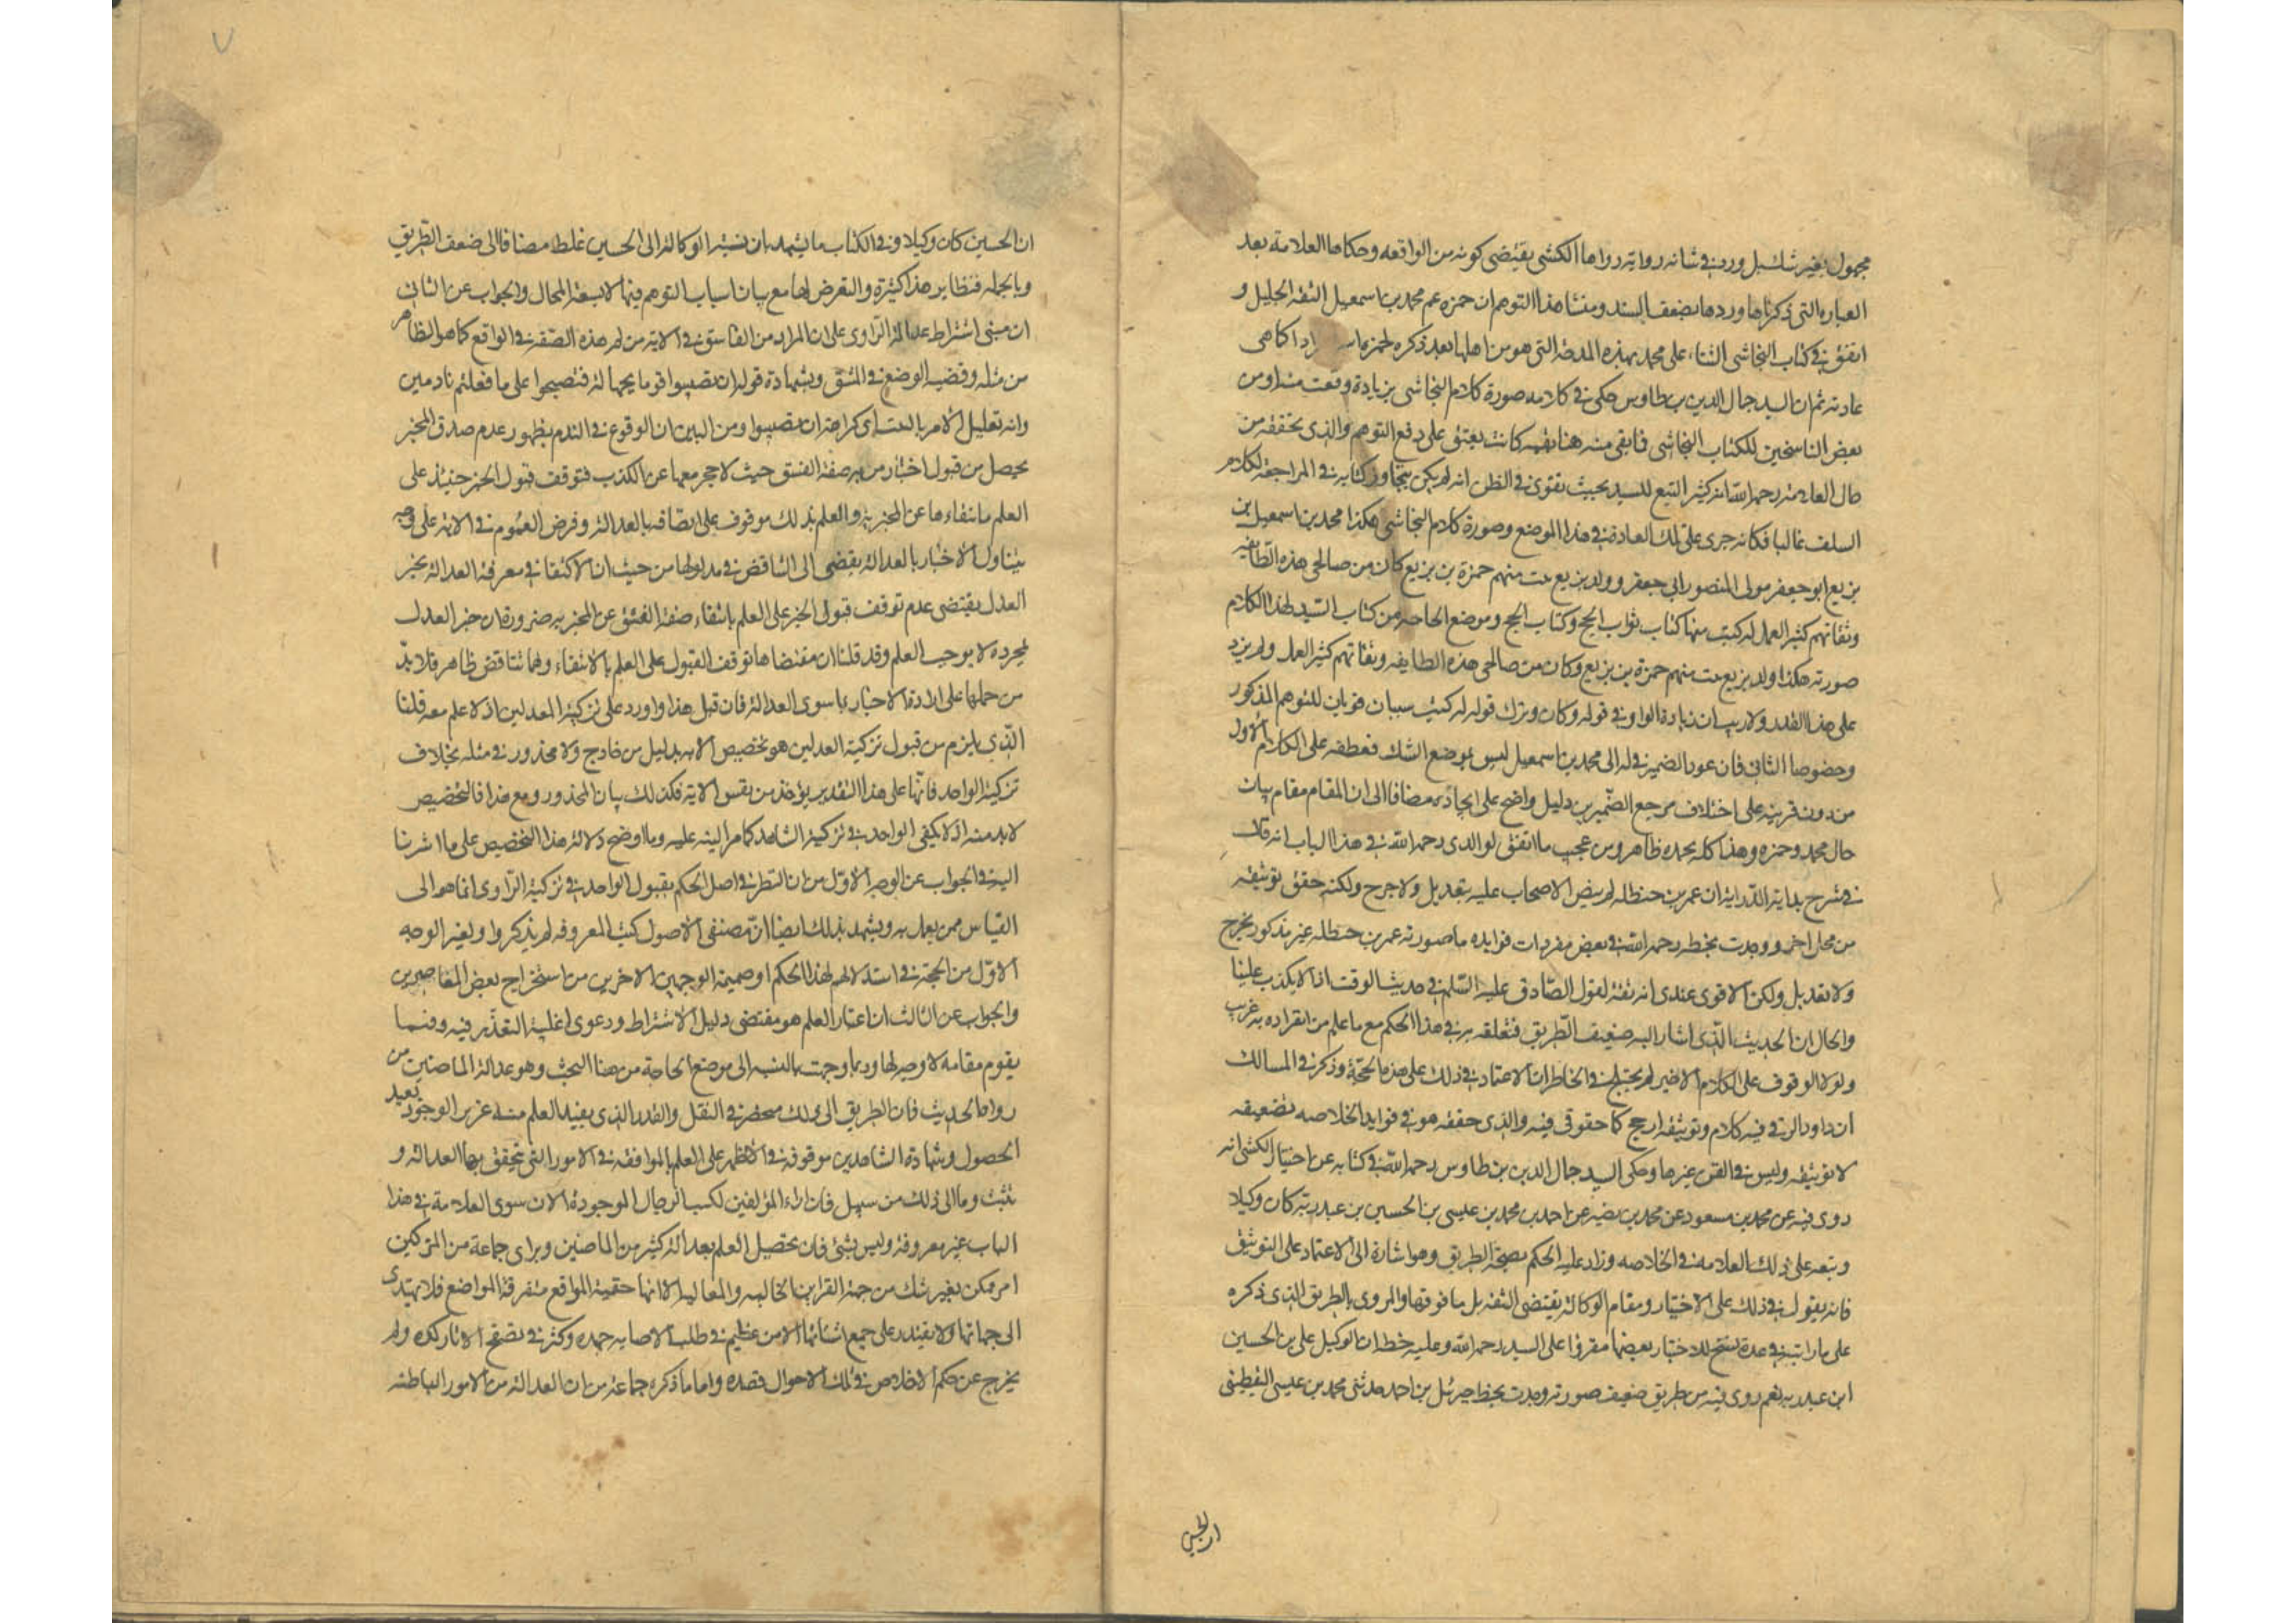 مجهول بغير شك بل ورد في شانه رواية رواها الكشى يقتضى كونه من الواقفه وحكاها العلامة بعد
العبارة التي ذكرناها وردها بضعف السند ومنشا هذا التوهم ان حمزه عم محمد بن اسمعيل الثقة الجليل و
اتفق في كتاب النجاشى الثناء على محمد بهذه المدحة التي هو من اهلها بعد ذكره لحمزة كما هى
عادته ثم ان السيد جمال الدين بن طاوس حكى في كلامه صورة كلام النجاشى بزيادة وقعت منه او من
بعض الناسخين للكتاب النجاشى فابقى منه هنا بقيه كانت تعين على دفع التوهم والذى تحققته من
حال العلامة رحمه الله انه كثير التتبع للسيد بحيث يقوى في الظن انه لم يكن يتجاوز كتابه في المراجعة لكلام
السلف غالبا فكانه جرى على تلك العادة في هذا الموضع وصورة كلام النجاشى هكذا محمد بن اسمعيل بن
بزيع ابو جعفر مولى المنصور ابي جعفر وولد بزيع بيت منهم حمزة بن بزيع كان من صالحى هذه الطايفه
وثقاتهم كثير العمل له كتب منها كتاب ثواب الحج وكتاب الحج وموضع الحاجه من كتاب السيد لهذا الكلام
صورته هكذا وولد بزيع بيت منهم حمزة بن بزيع وكان من صالحى هذه الطايفه وثقاتهم كثير العمل ولم يزد
على هذا القدر ولا ريب ان زيادة الواو في قوله وكان وترك قوله له كتب سببان قويان للتوهم المذكور
وخصوصا الثانى فان عود الضمير في له الى محمد بن اسمعيل ليس بموضع الشك فعطفه على الكلام الاول
من دون قرينة على اختلاف مرجع الضميرين دليل واضح على اتحاده مضافا الى ان المقام مقام بيان
حال محمد وحمزه وهذا كله بحمده ظاهر ومن عجيب ما اتفق لوالدى رحمه الله في هذا الباب انه قال
في شرح بداية الدراية ان عمر بن حنظله لم ينص الاصحاب عليه بتعديل ولا جرح ولكنه حقق توثيقه
من محل اخر ووجدت بخطه رحمه الله في بعض مفردات فوايده ما صورته عمر بن حنظله غير مذكور بجرح
ولا تعديل ولكن الاقوى عندى انه ثقة لقول الصادق عليه السلم في حديث الوقت اذا لا يكذب علينا
والحال ان الحديث الذى اشار اليه ضعيف الطريق فتعلقه به في هذا الحكم مع ما علم من انفراده به غريب
ولولا الوقوف على الكلام الاخير لم يختلج في الخاطر ان الاعتماد في ذلك على هذه الحجة وذكر في المسالك
ان داود الرقى فيه كلام وتوثيقه ارجح كما حقق في فنه والذى حققه هو في فوايد الخلاصه تضعيفه
لا توثيقه وليس في الفن غيرها وحكى السيد جمال الدين بن طاوس رحمه الله في كتابه عن اختيار الكشى انه
روى فيه عن محمد بن مسعود عن محمد بن نصير عن احمد بن محمد بن عيسى بن الحسين بن عبد ربه كان وكيلا
وتبعه على ذلك العلامة في الخلاصه وزاد عليه الحكم بصحة الطريق وهو اشارة الى الاعتماد على التوثيق
فانه يعول في ذلك على الاختيار ومقام الوكالة يقتضى الثقه بل ما فوقها والمروى بالطريق الذى ذكره
على ما رايته في عدة نسخ للاختيار بعضها مقروا على السيد رحمه الله وعليه خطه ان الوكيل على بن الحسين
ابن عبد ربه نعم روى فيه من طريق ضعيف صورته وجدت بخط جبرئيل بن احمد حدثنى محمد بن عيسى اليقطينى
ان الحسين
ان الحسين كان وكيلا وفي الكتاب ما يشهد بان نسبة الوكالة الى الحسين غلط مضافا الى ضعف الطريق
وبالجمله فنظاير هذا كثيرة والتعرض لها مع بيان اسباب التوهم فيها لا يسعه المجال والجواب عن الثانى
ان مبنى اشتراط عدالة الراوى على ان المراد من الفاسق في الاية من له هذه الصفة في الواقع كما هو الظاهر
من مثله وقضية الوضع في المشتق وبشهادة قوله ان تصيبوا قوما بجهالة فتصبحوا على ما فعلتم نادمين
وانه تعليل الامر بالتثبت اى كراهة ان تصيبوا ومن البين ان الوقوع في الندم بظهور عدم صدق المخبر
يحصل من قبول اخبار من له صفة الفسق حيث لا حجر معها عن الكذب فتوقف قبول الخبر حينئذ على
العلم بانتفاءها عن المخبر به والعلم بذلك موقوف على اتصافه بالعدالة وفرض العموم في الاية على وجه
يتناول الاخبار بالعدالة يفضى الى التناقض في مدلولها من حيث ان الاكتفا في معرفة العدالة بخبر
العدل يقتضى عدم توقف قبول الخبر على العلم بانتفاء صفة الفسق عن المخبر به ضرورة ان خبر العدل
بمجرده لا يوجب العلم وقد قلنا ان مقتضاها توقف القبول على العلم بالانتفاء وهما تناقض ظاهر فلا بد
من حملها على ارادة الاخبار بما سوى العدالة فان قيل هذا وارد على تزكية المعدلين اذ لا علم معه قلنا
الذى يلزم من قبول تزكية العدلين هو تخصيص الاية بدليل من خارج ولا محذور في مثله بخلاف
تزكية الواحد فانها على هذا التقدير يؤخذ من نفس الاية فكذلك بيان المحذور ومع هذا فالتخصيص
لابد منه اذ لا يكفى الواحد في تزكية الشاهد كما مر اليه عليه وما اوضح دلالة هذا التخصيص على ما اشرنا
اليه في الجواب عن الوجه الاول من ان النظر في اصل الحكم بقبول الواحد في تزكية الراوى انما هو الى
القياس ممن يعمل به ويشهد بذلك ايضا ان مصنفى الاصول كتب المعروفه لم يذكروا ولغير الوجه
الاول من الحجة في استدلالهم لهذا الحكم وضميمة الوجهين الاخرين من استخراج بعض المعاصرين
والجواب عن الثالث ان اعتبار العلم هو مقتضى دليل الاشتراط ودعوى اغلبية التعذر فيه وفيما
يقوم مقامه لا وجه لها وربما وجهت بالنسبة الى موضع الحاجة من هذا البحث وهو عدالة الماضين من
رواة الحديث فان الطريق الى ذلك منحصر في النقل والقدر الذى يفيد العلم منه عزيز الوجود بعيد
الحصول وشهادة الشاهدين موقوفة في الاظهر على العلم بالموافقه في الامور التى يتحقق بها العدالة و
تثبت وما الى ذلك من سبيل فان اراء المؤلفين لكتب الرجال الموجودة الان سوى العلامة في هذا
الباب غير معروفة وليس بشئ فان تحصيل العلم بعدالة كثير من الماضين وبراى جماعة من المزكين
امر ممكن بغير شك من جهة القراين الحاليه والمقالية الا انها خفية المواقع متفرقة المواضع فلا يهتدى
الى جهاتها ولا يقتدر على جمع اشتاتها الا من عظم في طلب الاصابه جهده وكثر في تصفح الاثار كده ولم
يخرج عن حكم الاخلاص في تلك الاحوال قصده واما ما ذكره جماعة من ان العدالة من الامور الباطنه